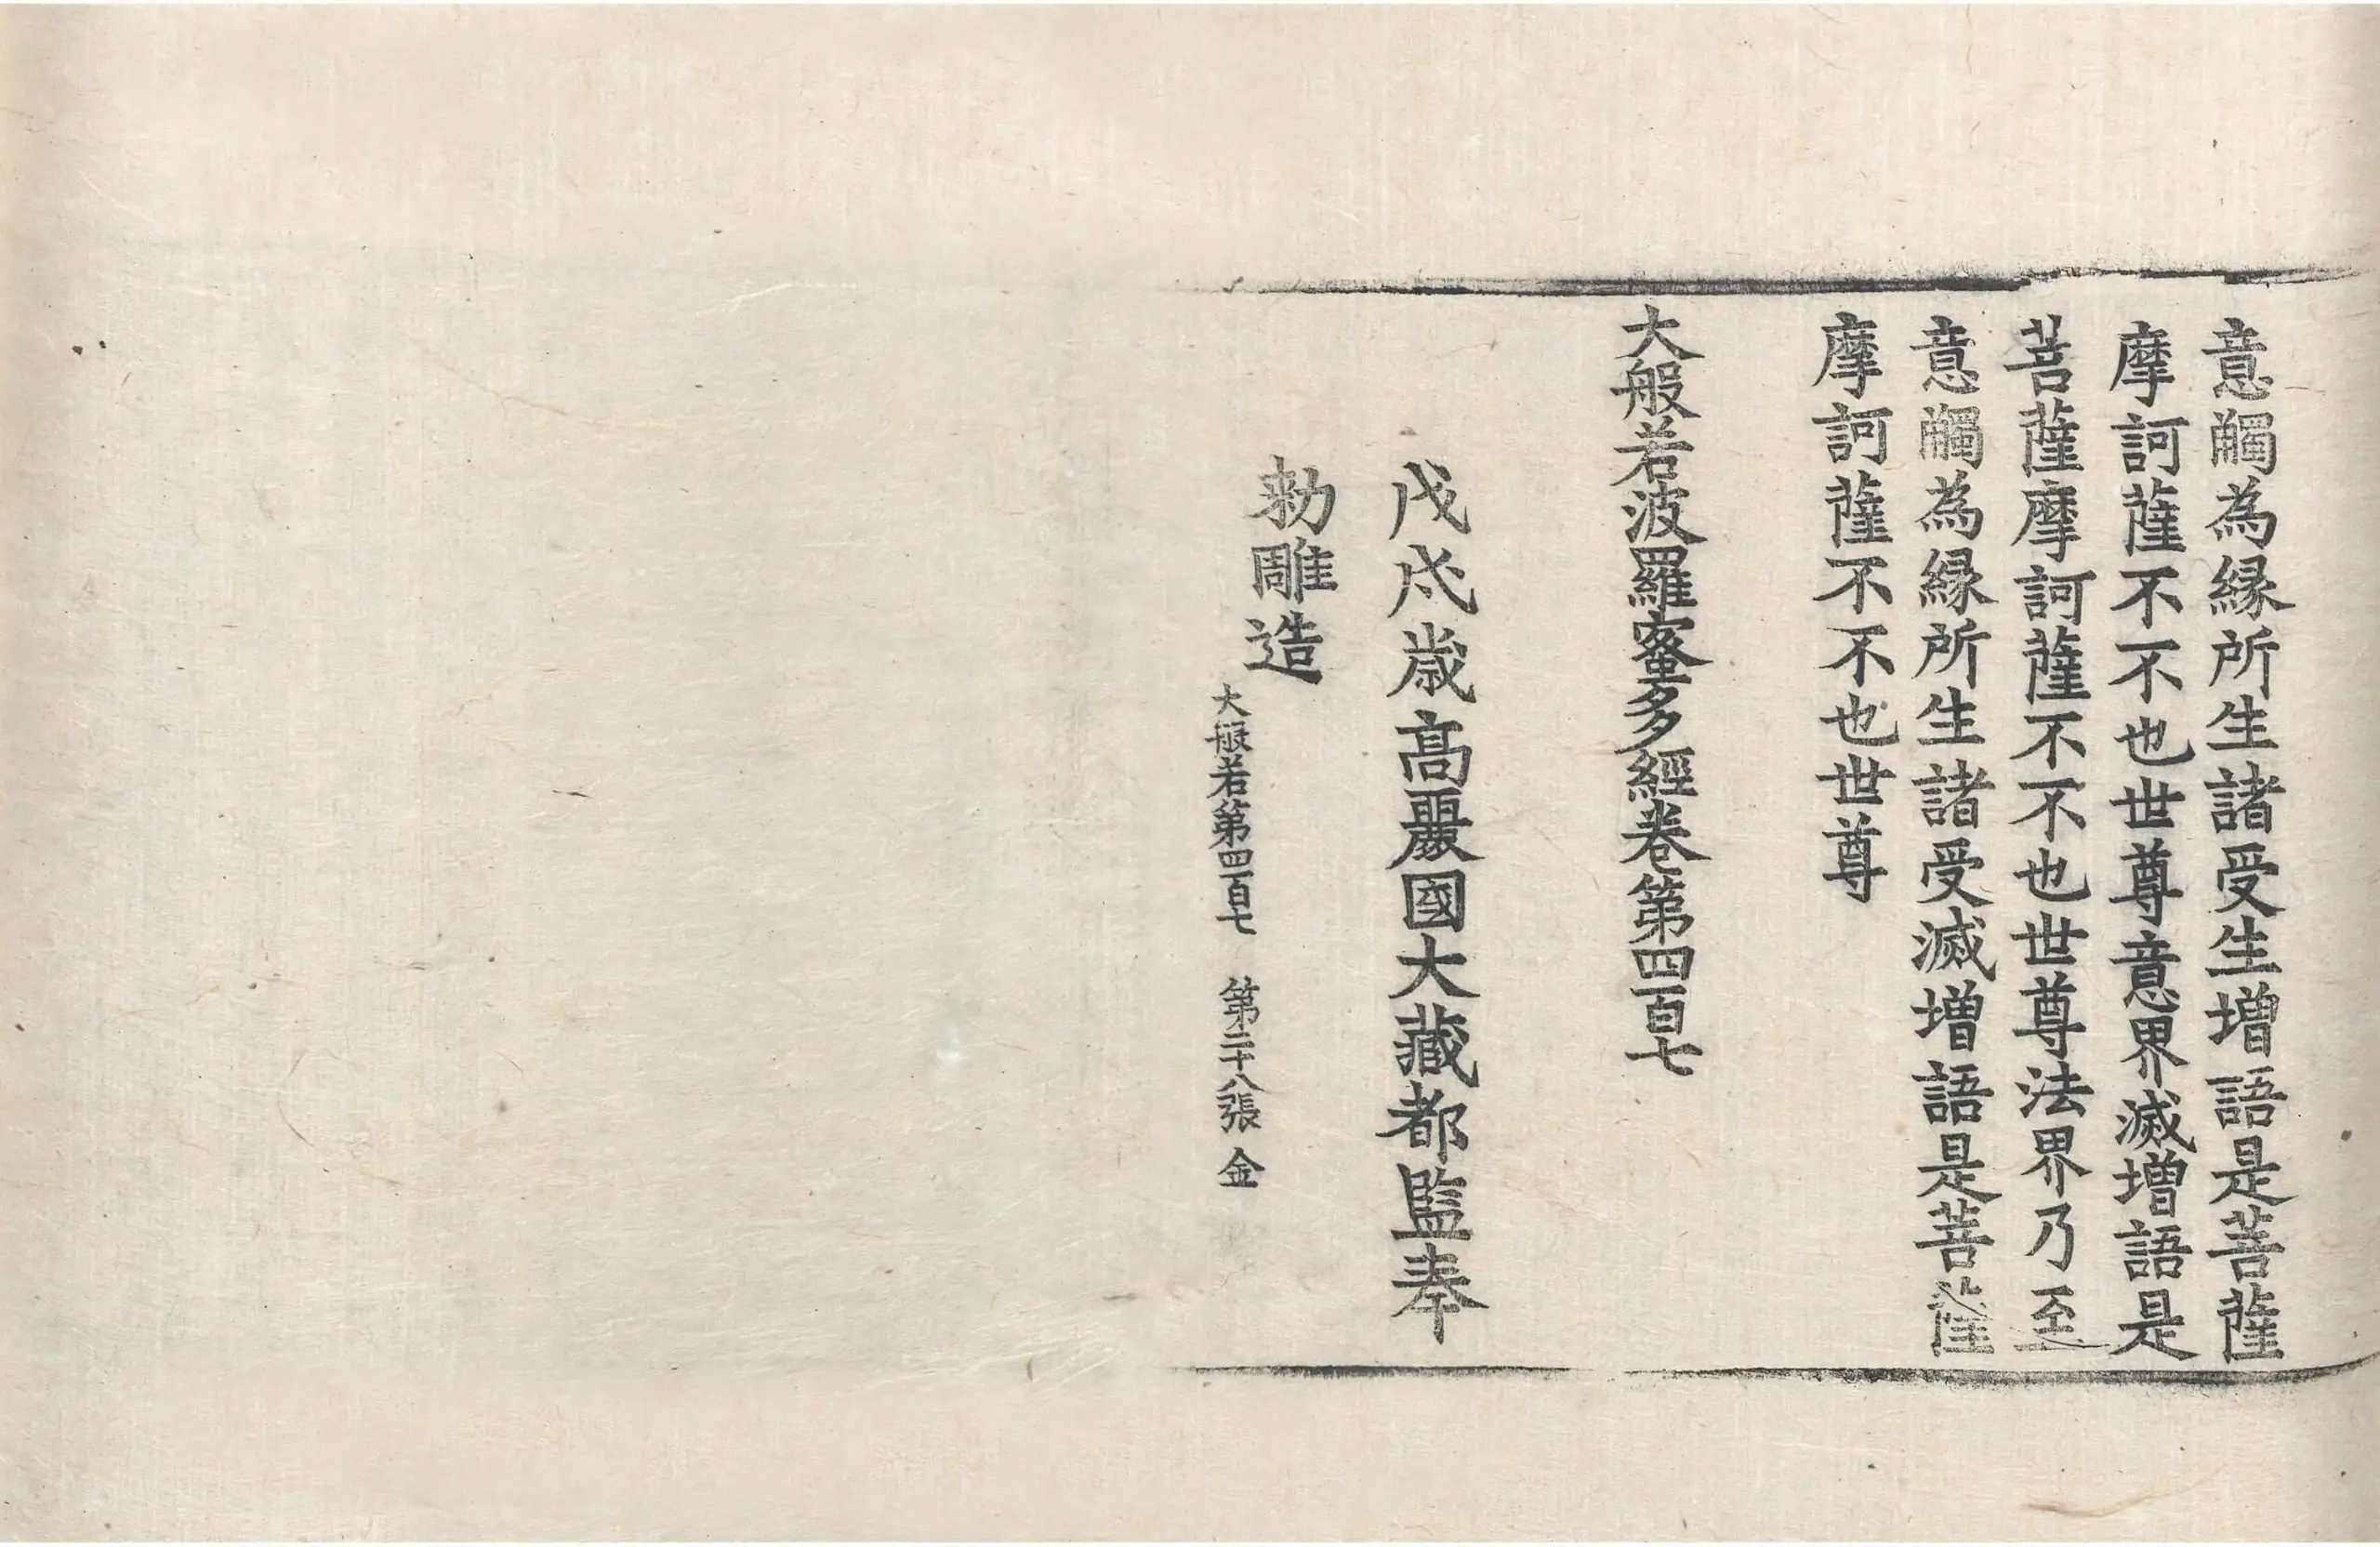 意觸為縁所生諸受生增語是菩薩
摩訶薩不不也世尊意界滅增語是
菩薩摩訶薩不不也世尊法界乃至
意觸為縁所生諸受滅增語是菩薩
摩訶薩不不也世尊
大般若波羅蜜多經卷第四百七
戊戌歳高麗國大藏都監奉
勑雕造
大般若第四百七 第二十八張 金